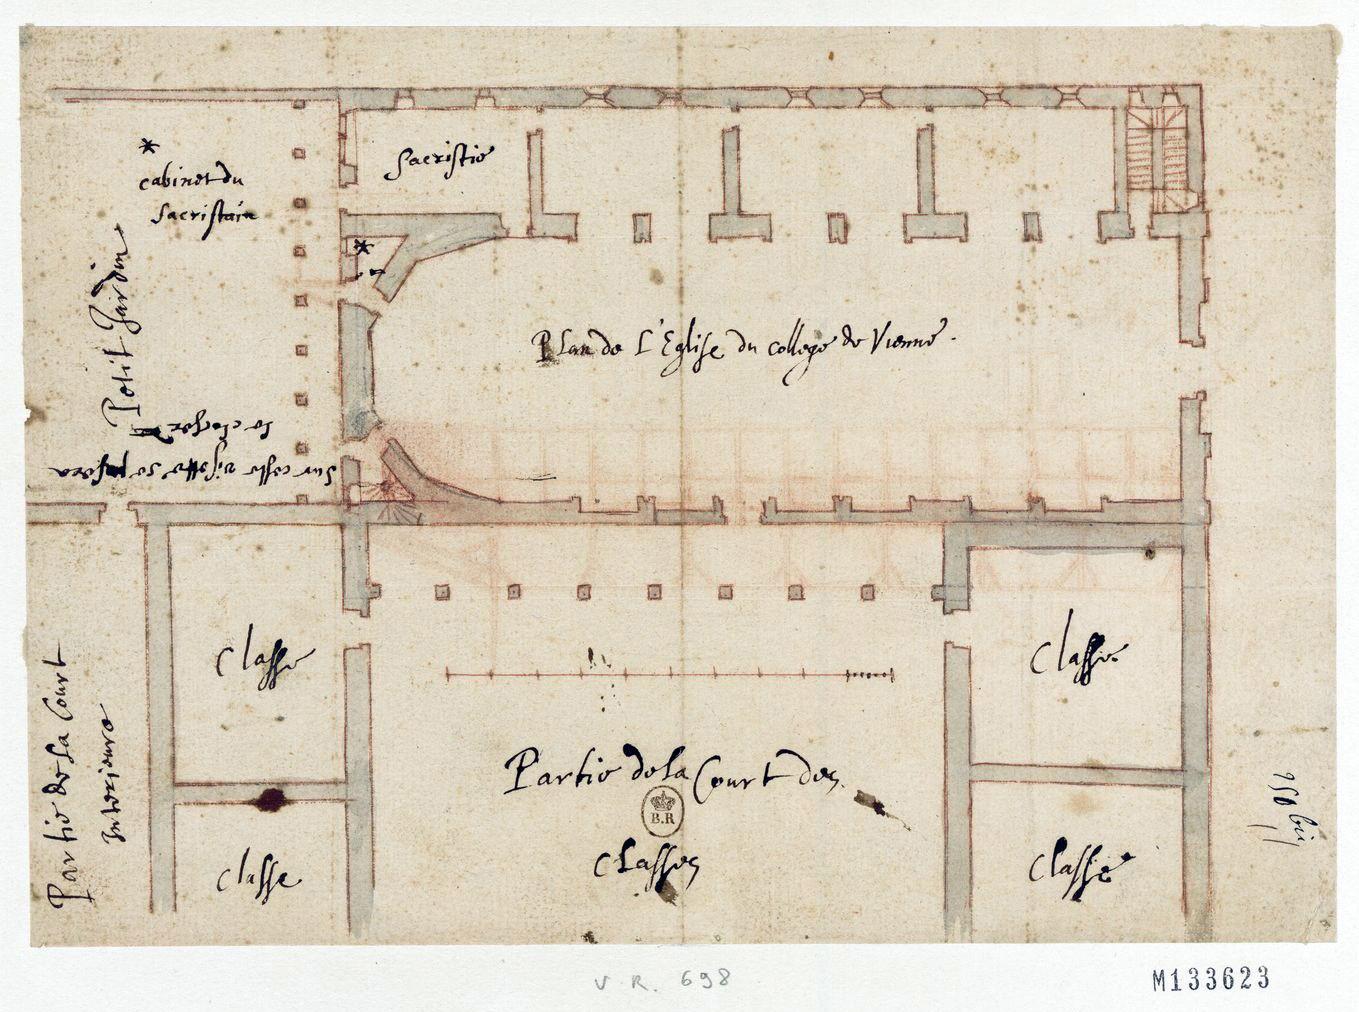 *
cabinet du
Sacristain
Sacristie
*
Petit Jardin
Plan de L'Eglise du college de Vienne.
Sur ceste visette se
le clocher
Classe
Classe
Partie de la Court
Interieure
Partie de la Court des
B.R
Classes
Classe
Classe
950 bis
V R. 698
M133623